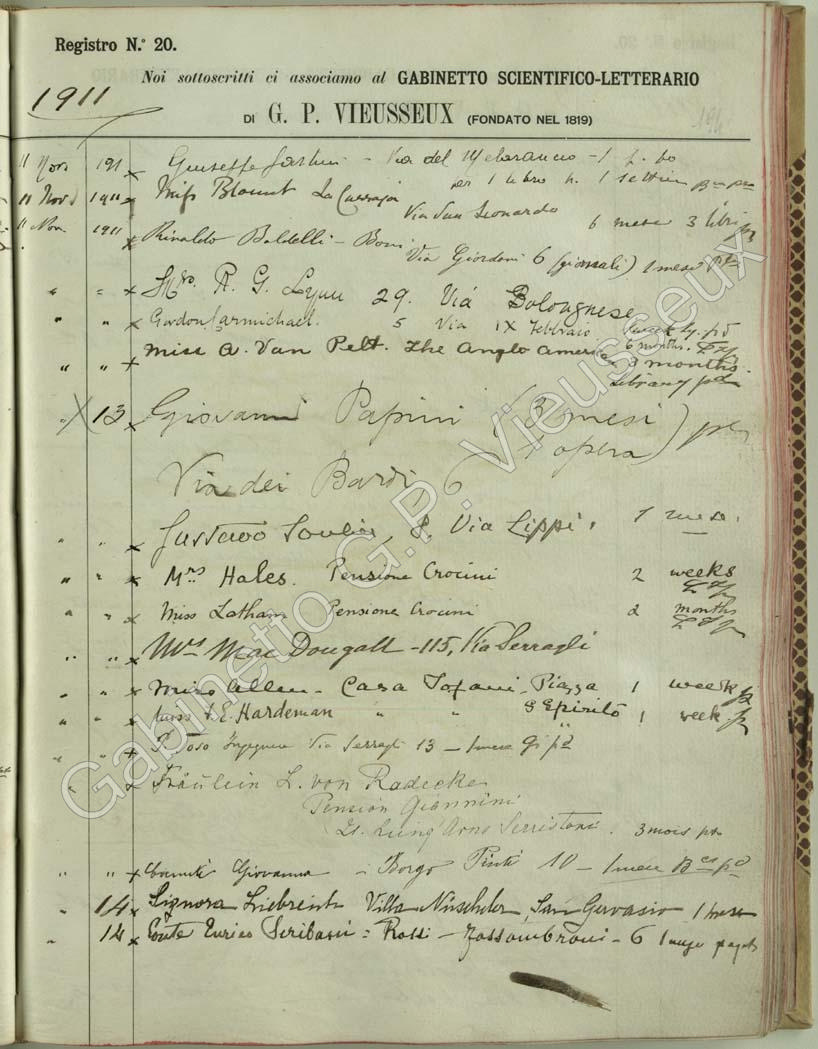 Registro N.° 20.
Noi sottoscritti ci associamo al GABINETTO SCIENTIFICO-LETTERARIO
1911
DI G. P. VIEUSSEUX (FONDATO NEL 1819)
11 Nov 1911 Giuseppe - Via del Melarancio - 1
11 Nov 1911 Miss Blount La Carraja per 1 libro
Via San Leonardo 6 mesi 3 libri
11 Nov. 1911 Rinaldo Baldelli - Boni
Via Giordani 6 (giornali) 1 mese
" " Mrs. R. G. Lynn 29. Via Bolognese
" " Gordon Carmichael. 5 Via IX Febbraio
6 months.
" " Miss A. Van Pelt. The Anglo American 3 months.
Library pd
" 13 Giovanni Papini (3 mesi
1 opera)
Via dei Bardi 6
" " Gustavo 8. Via Lippi. 1 mese.
" " Mrs Hales. Pensione Crocini 2 weeks
" " Miss Latham Pensione Crocini 2 months
" " Mrs Mac Dougall - 115, Via Serragli
" " Miss Allen - Casa Tofani, Piazza 1 week
" " Miss A. E. Hardeman " " S Spirito 1 week
" " P. Toso Ingegnere Via Serragli 13 - 1 mese
" " Fräulein L. von Radecke
Pension Giannini
Lung' Arno Serristori. 3 mois
" " Giovanna - Borgo Pinti 10 - 1 mese
" 14 Signora Villa Nüscheler, San Gervasio 1 mese
" 14 Conte Enrico Scribani = Rossi - Fossombroni - 6
Gabinetto G.P. Vieusseux